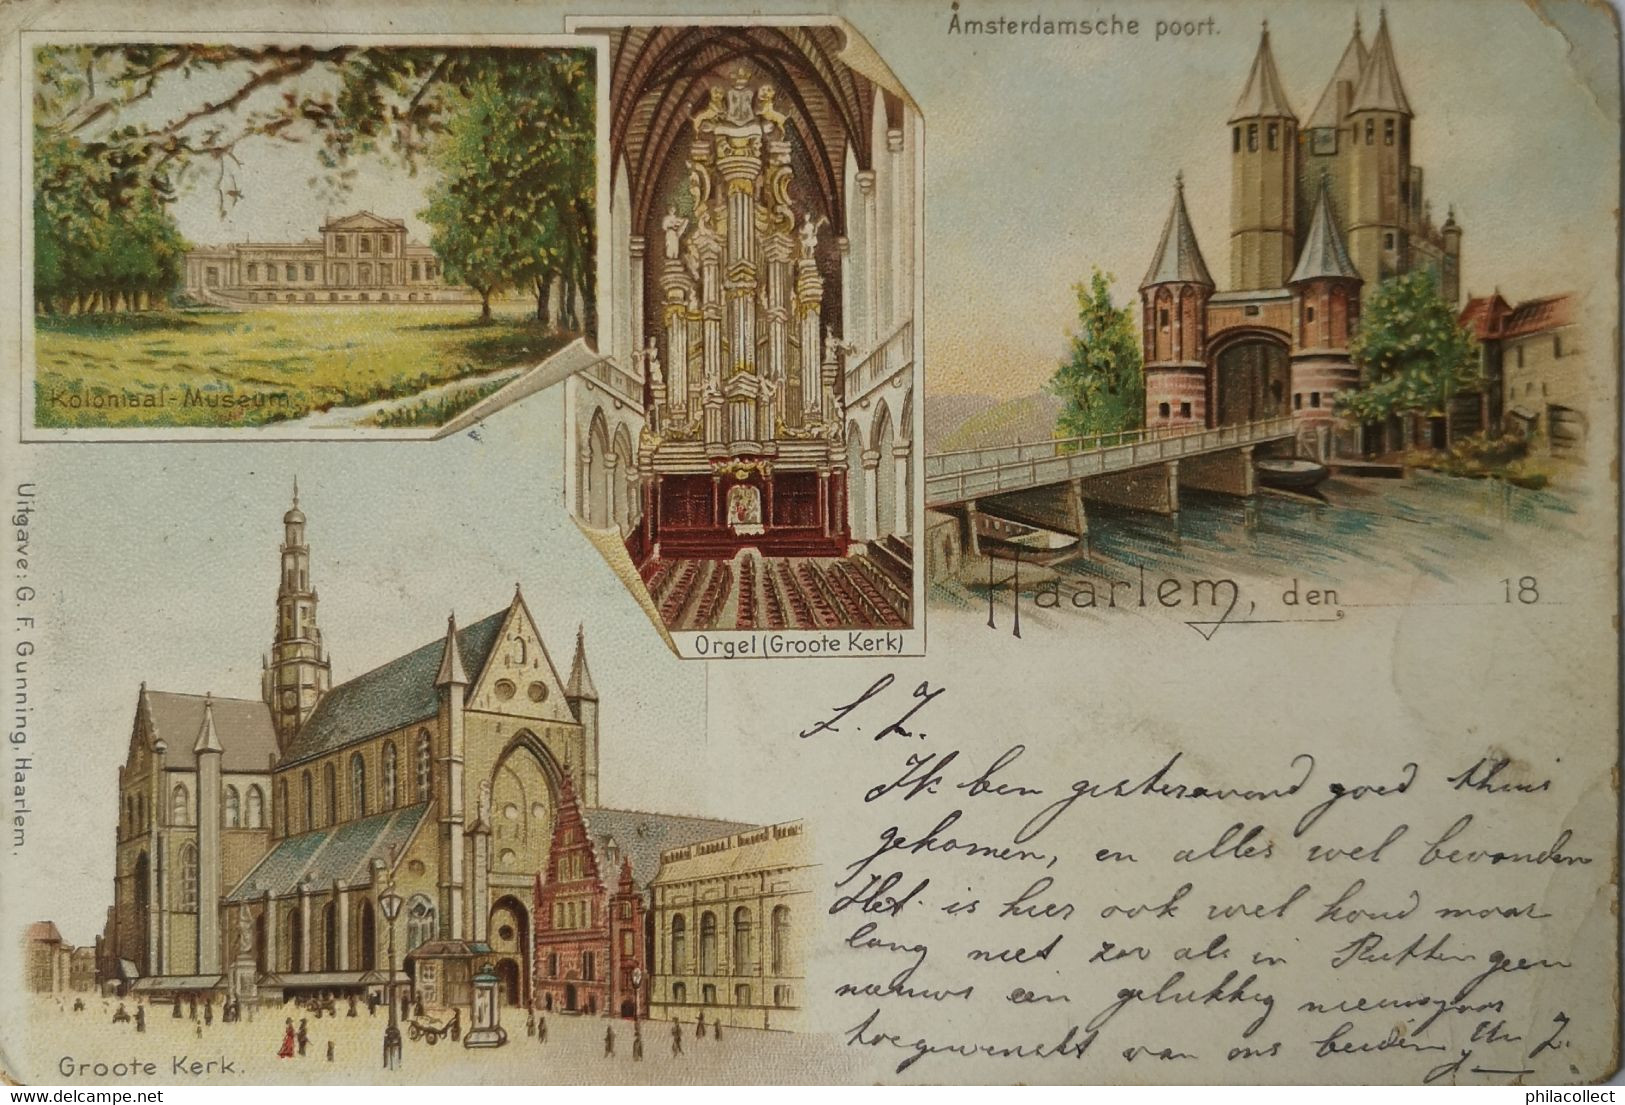 Amsterdamsche poort.
Koloniaal-Museum.
Orgel (Groote Kerk)
Haarlem, den 18
Uitgave: G. F. Gunning, Haarlem.
Groote Kerk.
L. Z.
Ik ben gisteravond goed thuis
gekomen, en alles wel bevonden
Het is hier ook wel koud maar
lang niet zoo als in Putten geen
nieuws een gelukkig nieuwsjaar
toegewenscht van ons beiden Uw Z.
philacollect